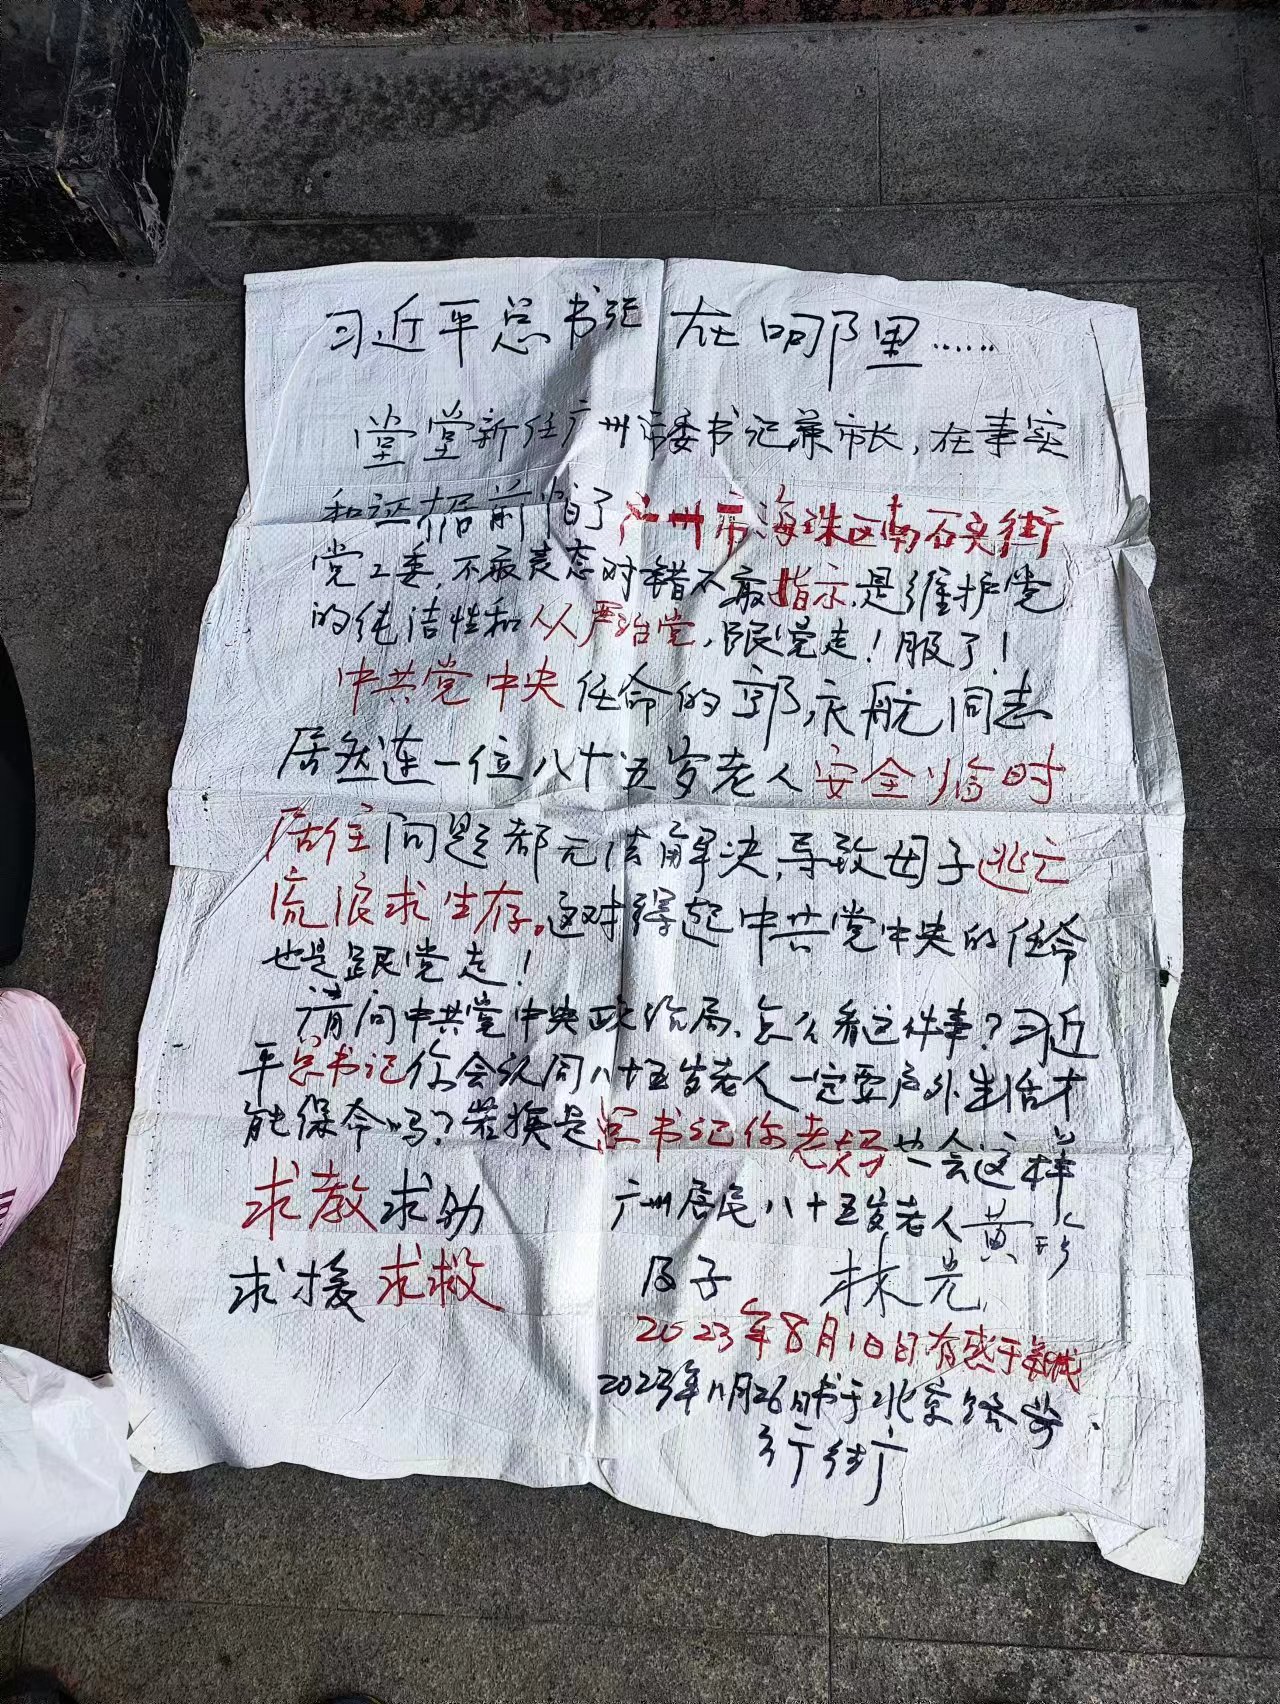 习近平总书记在哪里……
堂堂新任广州市委书记兼市长，在事实
和证据前怕了广州市海珠区南石头街
党工委，不敢表态对错不敢指示，是维护党
的纯洁性和从严治党，跟党走！服了！
中共党中央任命的郭永航同志
居然连一位八十五岁老人安全临时
居住问题都无法解决，导致母子逃亡
流浪求生存。这对得起中共党中央的任命
也是跟党走！
请问中共党中央政治局、怎么看这件事？习近
平总书记你会认同八十五岁老人一定要户外生活才
能保命吗？若换是总书记你老妈也会这样
求教求助
广州居民八十五岁老人黄
求援求救
及子 林光
2023年8月1日有感于
2023年11月26日书于北京